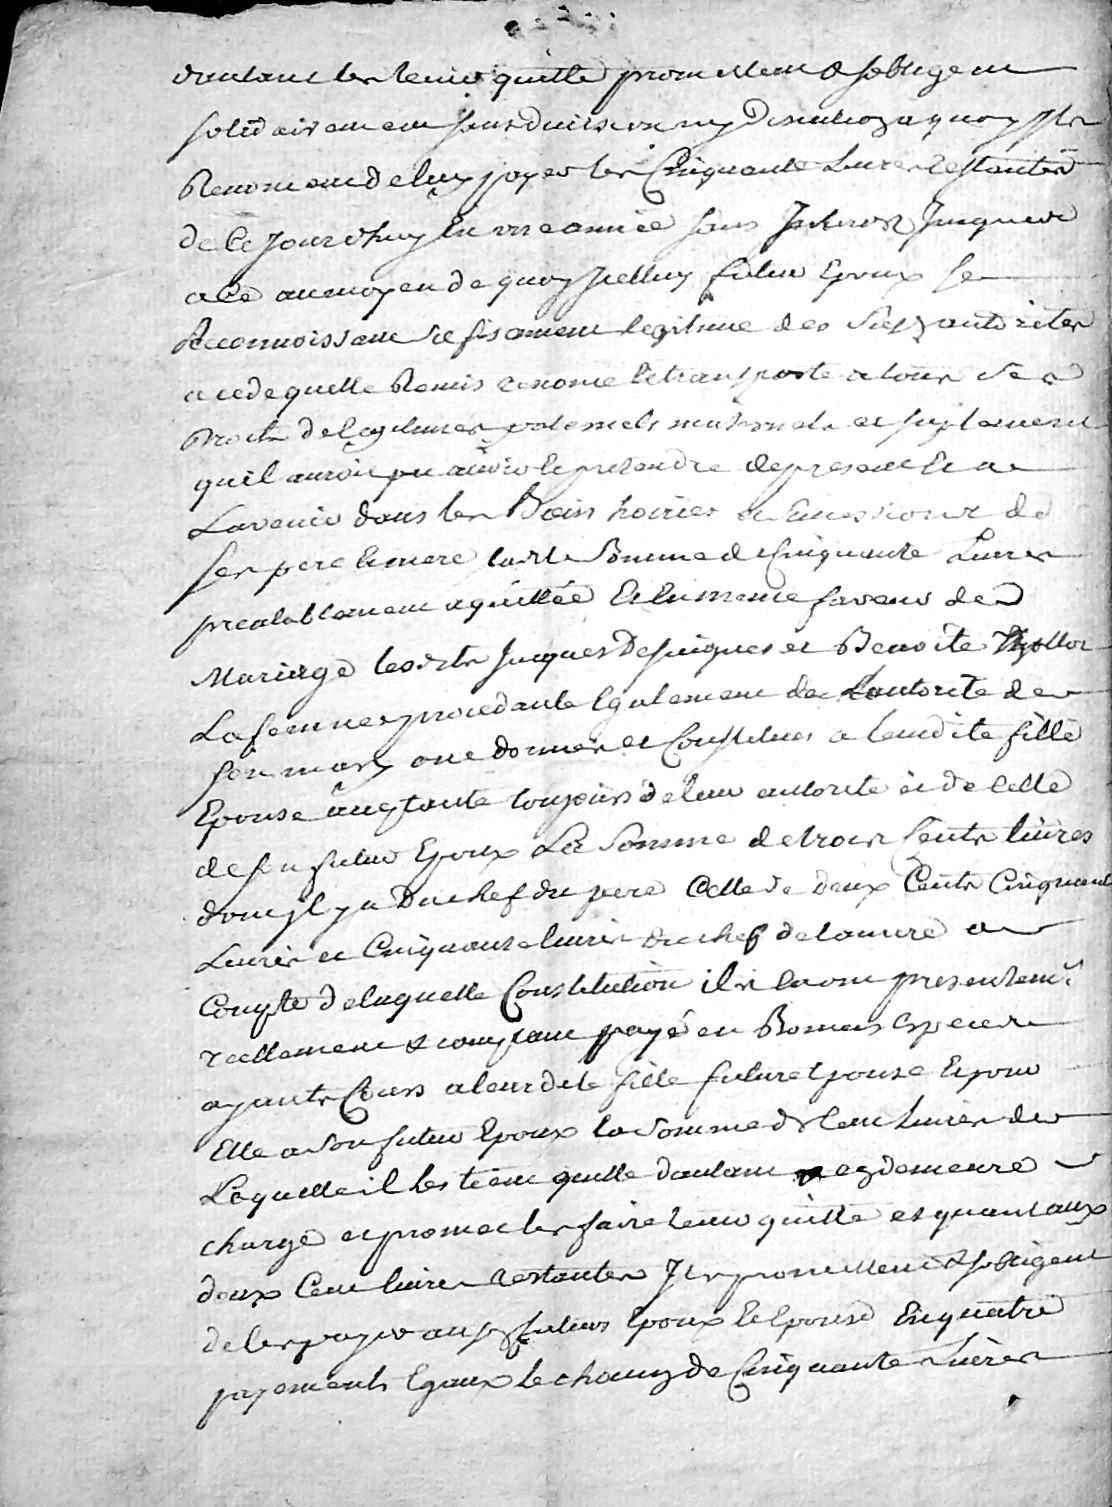 dautant les tenir quitte promettent & sobligent
solidairement sans division ny discution a quoy Ils
Renoncent de luy payer les Cinquante Livres restantes
de ce jourdhuy En une année sans Interest Jusques
a ce au moyen de quoy Icelluy futur Epoux se
Reconnoissant suffisament legitimé des susd autorités
a cedé quitté Remis renoncé et transporté a tous ses
Droits de legitimes paternels maternels et suplement
quil auroit pu avoir et pretendre de present et a
Lavenir dans les Biens hoiries et successions de
ses pere et mere ladte Somme de Cinquante Livres
prealablement aquittée Et En meme faveur de d
Mariage lesdts Jacques Desuignes et Benoite
La femme procedante Egalement de Lautorité de
son mary ont donné et Constitué a leurdite fille
Epouse acceptante toujours de leur autorité et de Celle
de son futur Epoux La Somme de trois Cents livres
dont Il y a Du chef du pere Celle de deux Cents Cinquante
Livres et Cinquante livres du chef de la mere a
Compte de laquelle Constitution ils layont presentemt
reellement & comptant payé en Bonnes especes
ayants Cours a leurdite fille future Epouse Et pour
Elle a son futur Epoux la Somme de Cent Livres de
Laquelle il les tient quitte dautant en demeure
chargé et promet les faire tenir quitte et quant aux
deux Cent livres restantes Ils promettent & sobligent
de les payer aux sd futurs Epoux et Epouse En quatre
payements Egaux le chacun de Cinquante Livres